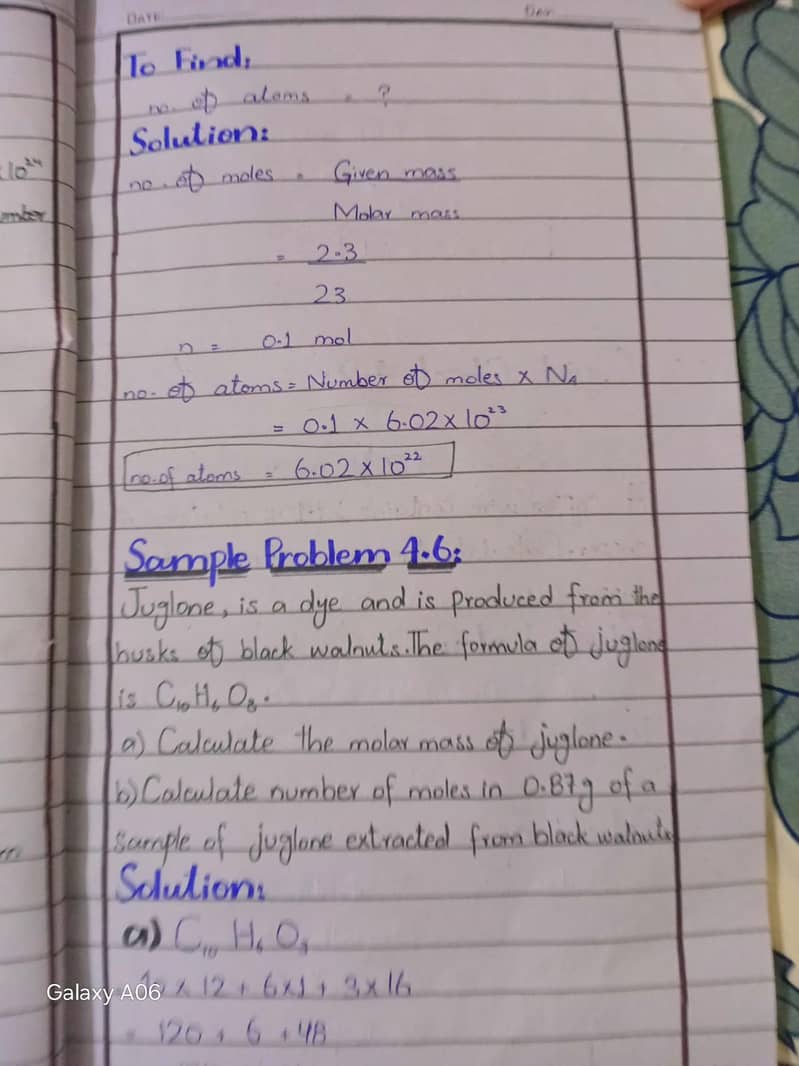 DATE
DAY
To Find:
no. of atoms = ?
Solution:
10²⁴
no. of moles = Given mass
Molar mass
= 2.3
23
n = 0.1 mol
no. of atoms = Number of moles x NA
= 0.1 x 6.02 x 10²³
no. of atoms = 6.02 x 10²²
Sample Problem 4.6:
Juglone, is a dye and is produced from the
husks of black walnuts. The formula of juglone
is C₁₀H₆O₃.
a) Calculate the molar mass of juglone.
b) Calculate number of moles in 0.87g of a
sample of juglone extracted from black walnuts
Solution:
a) C₁₀ H₆ O₃
10 x 12 + 6x1 + 3x16
= 120 + 6 + 48
Galaxy A06